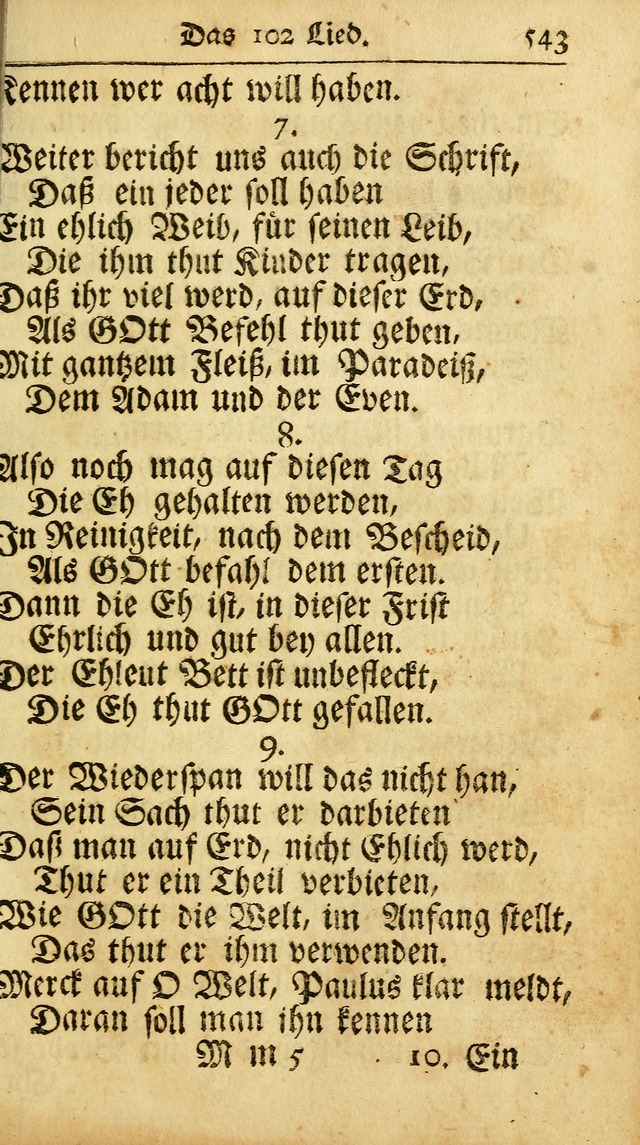 Das 102 Lied. 543
kennen wer acht will haben.
7.
Weiter bericht uns auch die Schrift,
Daß ein jeder soll haben
Ein ehlich Weib, für seinen Leib,
Die ihm thut Kinder tragen,
Daß ihr viel werd, auf dieser Erd,
Als GOtt Befehl thut geben,
Mit gantzem Fleiß, im Paradeiß,
Dem Adam und der Even.
8.
Also noch mag auf diesen Tag
Die Eh gehalten werden,
In Reinigkeit, nach dem Bescheid,
Als GOtt befahl dem ersten.
Dann die Eh ist, in dieser Frist
Ehrlich und gut bey allen.
Der Ehleut Bett ist unbefleckt,
Die Eh thut GOtt gefallen.
9.
Der Wiederspan will das nicht han,
Sein Sach thut er darbieten
Daß man auf Erd, nicht Ehlich werd,
Thut er ein Theil verbieten,
Wie GOtt die Welt, im Anfang stellt,
Das thut er ihm verwenden.
Merck auf O Welt, Paulus klar meldt,
Daran soll man ihn kennen
M m 5 10. Ein